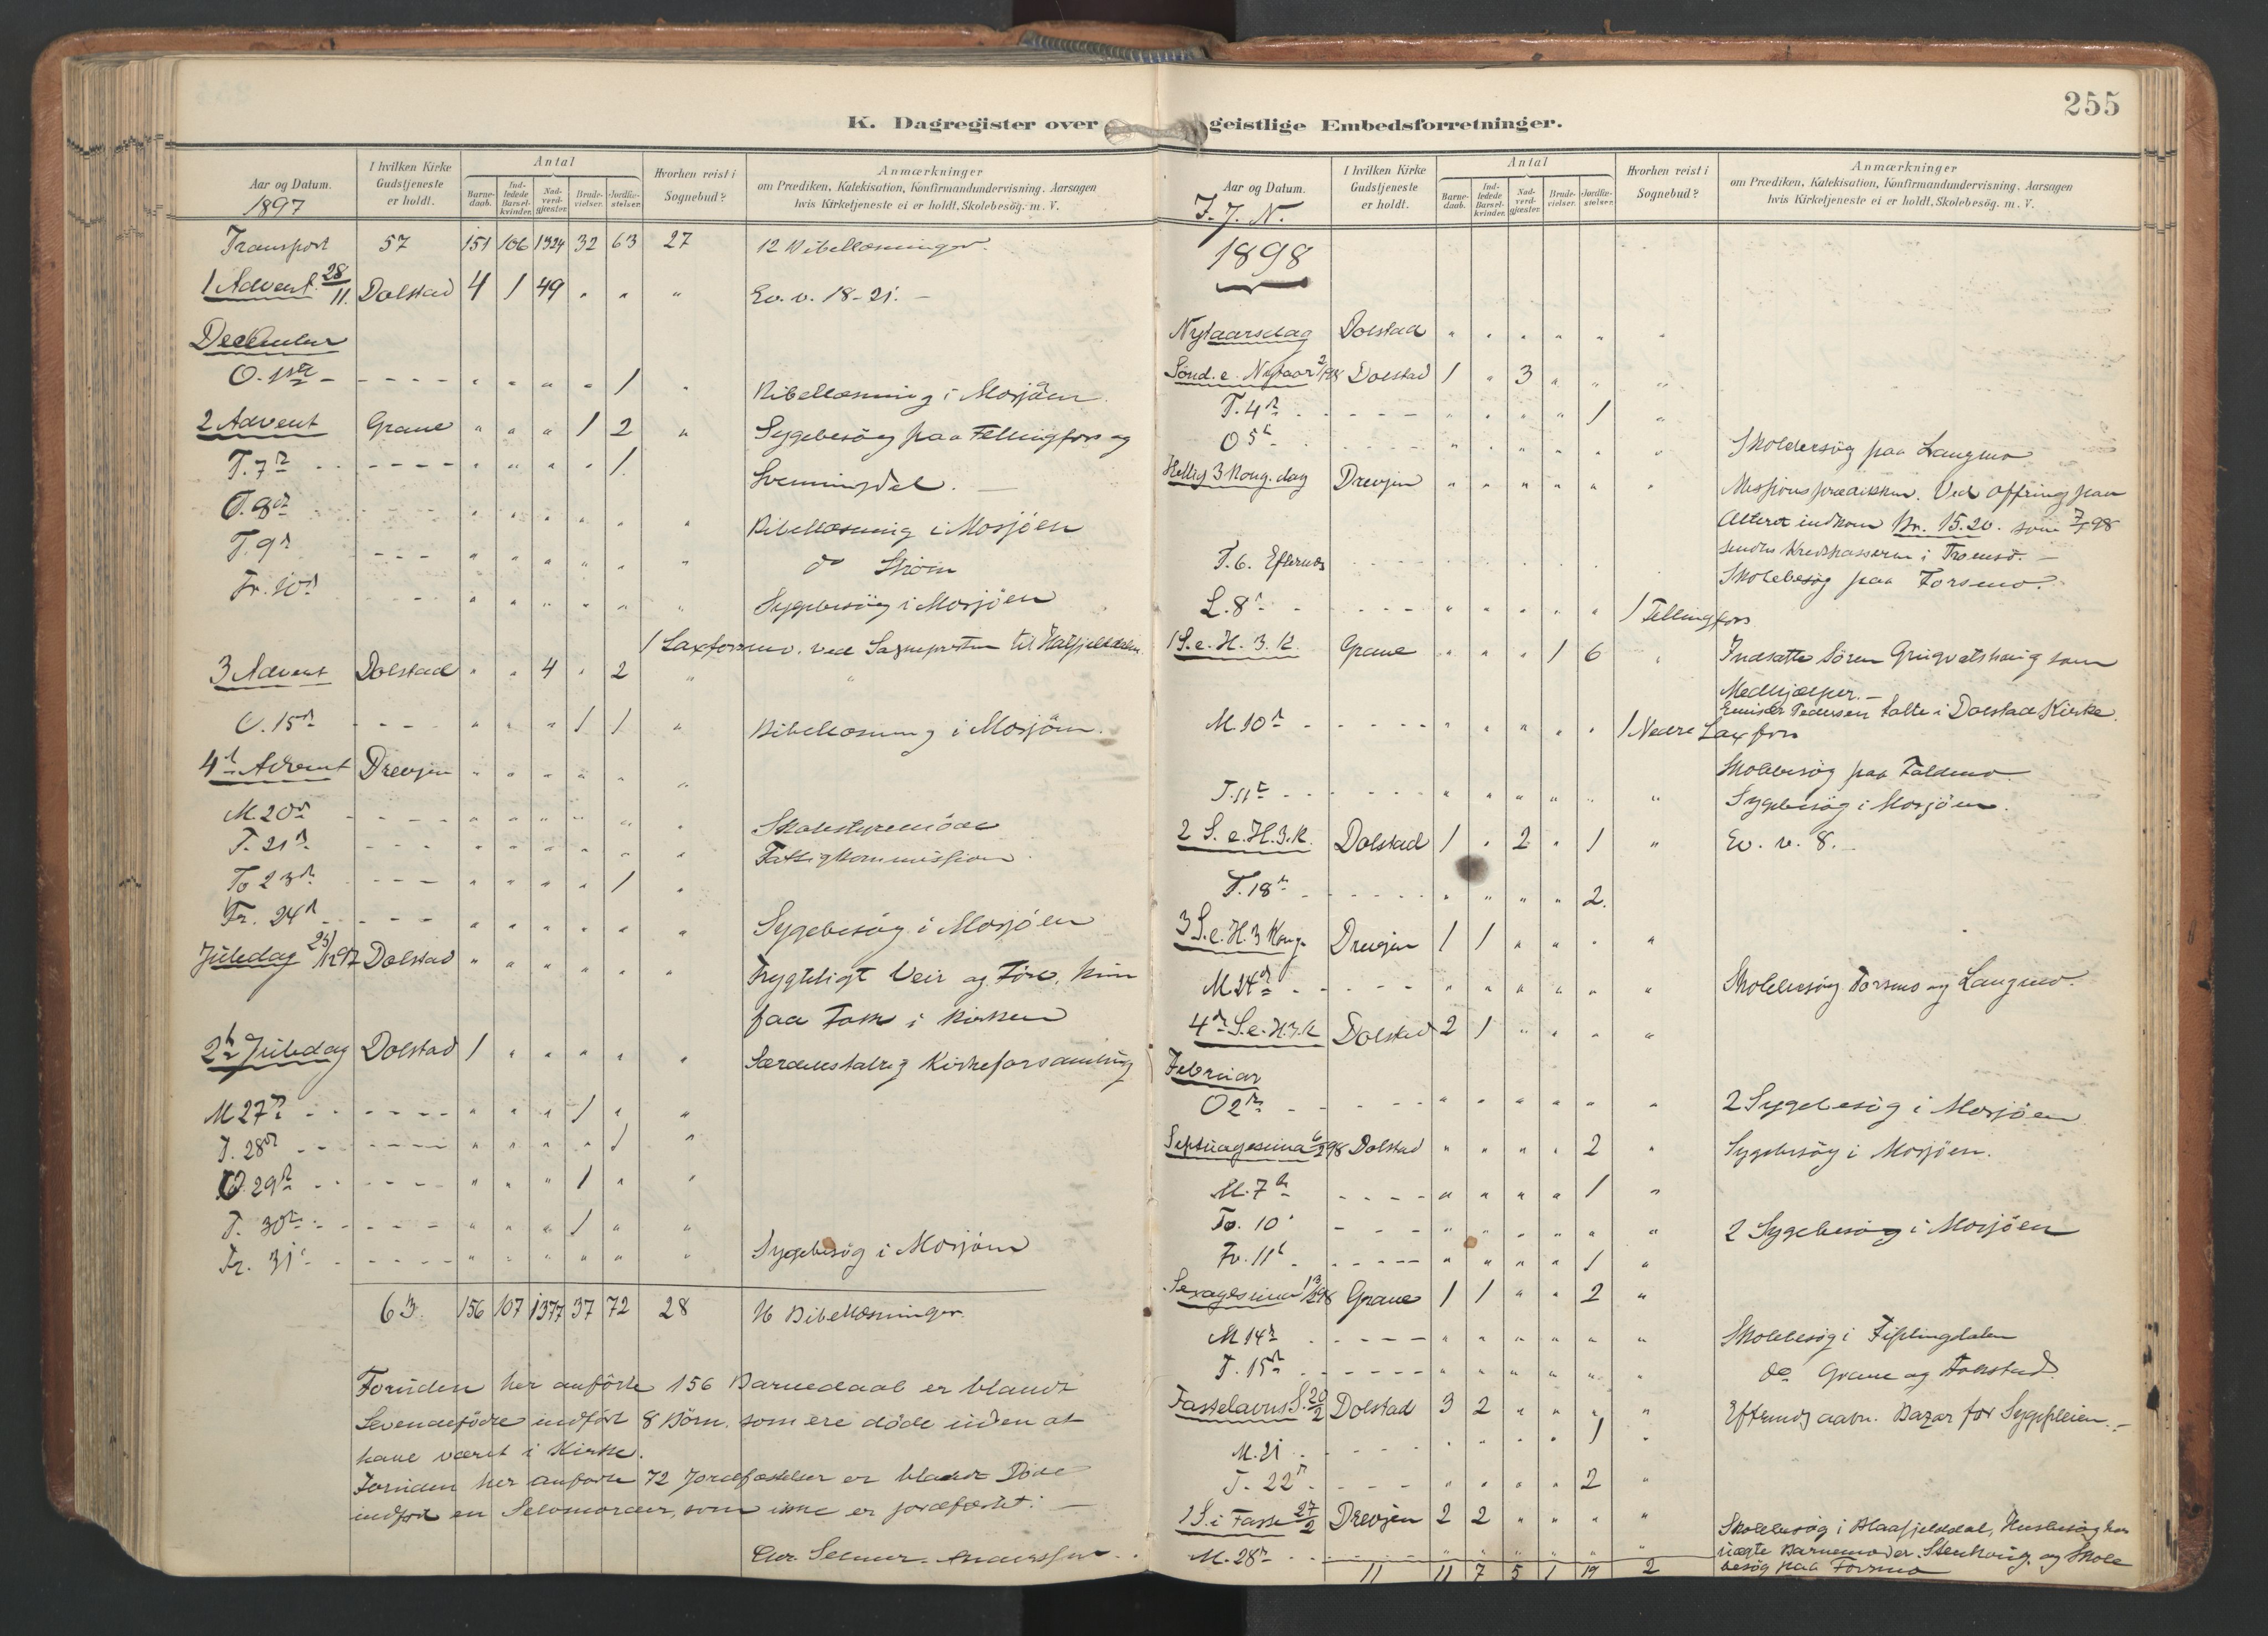 255
K. Dagregister over geistlige Embedsforretninger.
Aar og Datum. I hvilken Kirke Gudstjeneste er holdt. Antal Barnedaab. Indledede Barselkvinder. Nadverdgjæster. Brudevielser. Jordfæstelser. Hvorhen reist i Sognebud? Anmærkninger om Prædiken, Katekisation, Konfirmandundervisning. Aarsagen hvis Kirketjeneste ei er holdt, Skolebesøg. m. V.
1897
Transport 57 151 106 1324 32 63 27 12 Bibellæsninger.
1 Advent 28/11. Dolstad 4 1 49 " " " Ev. v. 18-21. -
December
O. 1ste - - - - - " " " " 1 " Bibellæsning i Mosjöen.
2 Advent Grane " " " 1 2 " Sygebesög paa Fellingfors og
T. 7de - - - - - - " " " " 1. Svenningdal. -
O. 8de " " " " " " Bibellæsning i Mosjöen
T. 9de - - - " " " " " " do Strøm
Fr. 10de - - - " " " " " " Sygebesög i Mosjöen
1 Laxforsmo. ved til Hatfjelddalen.
3 Advent Dolstad " " 4 " 2 " "
O. 15de - - - " " " 1 1 " Bibellæsning i Mosjöen.
4de Advent Drevjen " " " " " "
M. 20de - - - - " " " " " " Skolestyremöde
T. 21de - - - " " " " " " Fattigkommission.
To 23de - - - " " " " 1 "
Fr. 24de - - - - " " " " " " Sygebesög i Mosjöen
Juledag 25/12 97 Dolstad " " " " " " Frygteligt Veir og Före, kun
faa Folk i Kirken
2den Juledag Dolstad 1 " " " " " Særdeles talrig Kirkeforsamling
M 27de - - - - - - " " " 1 " "
T. 28de - - - - - - " " " " 1 "
O. 29de - - - - - - " " " 1 " "
T. 30te - - - - - " " " 1 " "
Fr. 31te - - - - - - " " " " " " Sygebesög i Mosjöen
63. 156 107 1377 37 72 28 16 Bibellæsninger.
Foruden her anförte 156 Barnedaab er blandt
Levendefödte indfört 8 Börn, som ere döde uden at
have været i Kirke.
Foruden her anförte 72 Jordfæstelser er blandt Döde
indfört en Selvmorder, som ikke er jordfæstet. -
Chr. Selmer-Anderssen.
Aar og Datum. I hvilken Kirke Gudstjeneste er holdt. Antal Barnedaab. Indledede Barselkvinder. Nadverdgjæster. Brudevielser. Jordfæstelser. Hvorhen reist i Sognebud? Anmærkninger om Prædiken, Katekisation, Konfirmandundervisning. Aarsagen hvis Kirketjeneste ei er holdt, Skolebesøg. m. V.
I. J. N.
1898
Nytaarsdag Dolstad " " " " " "
Sönd. e. Nytaar 2/1 98 Dolstad 1 " 3 " " "
T. 4de - - - - - " " " " 1 "
O 5te - - - - - " " " " " " Skolebesög paa Langmo
Hellig 3 Kong. dag Drevjen " " " " " " Missionsprædiken. Ved Offring paa
Alteret indkom Kr. 15.20. som 7/1 98
sendes Kredskasseren i Tromsö. -
T. 6. Eftermdg - - - - Skolebesög paa Forsmo.
L. 8de - - - - - " " " " " 1 Fellingfors
1 S. e. H. 3. K. Grane " " " 1 6 " Indsatte Sören som
Medhjælper. -
Emissær Pedersen talte i Dolstad Kirke.
M. 10de - - - - - - " " " " " 1 Nedre Laxfors
Skolebesög paa
T. 11te - - - - - - " " " " " " Sygebesög i Mosjöen.
2 S. e. H. 3. K. Dolstad 1 " 2 " 1 " Ev. v. 8. -
T. 18de - - - - - - " " " " 2.
3 S. e. H. 3 Kong. Drevjen 1 1 " " " "
M 24de - - - - - " " " " " " Skolebesög Forsmo og Langmo.
4de S. e. H. 3. K Dolstad 2 1 " " " "
Februar
O 2den - - - - - - " " " " " " 2 Sygebesög i Mosjöen
Septuagesima 6/2 98 Dolstad " " " " 2 " Sygebesög i Mosjöen.
M. 7de - - - - " " " " 1 "
To. 10de - - - - " " " " " " 2 Sygebesög i Mosjöen
Fr. 11te - - - - - - " " " " 1 "
Sexagesima 13/2 98 Grane 1 1 " " 2 "
M 14de - - - - - " " " " " " Skolebesög i Fiplingdalen
T. 15de - - - - - - " " " " " " do Grane og
Fastelavns S. 20/2 Dolstad 3 2 " " " " Eftermdg aabn. Bazar for Sygepleien. -
M. 21 - - - - - " " " " 1 "
T. 22de - - - - " " " " 2 "
1 S. i Faste 27/2 Drevjen 2 2 " " " " Skolebesög i Blaafjelddal, Husbesög hos
M. 28de - - - - - - " " " " " " uægte Barnemoder. Stenhaug. og Skole
11 11 7 5 1 19 2 besög paa Forsmo